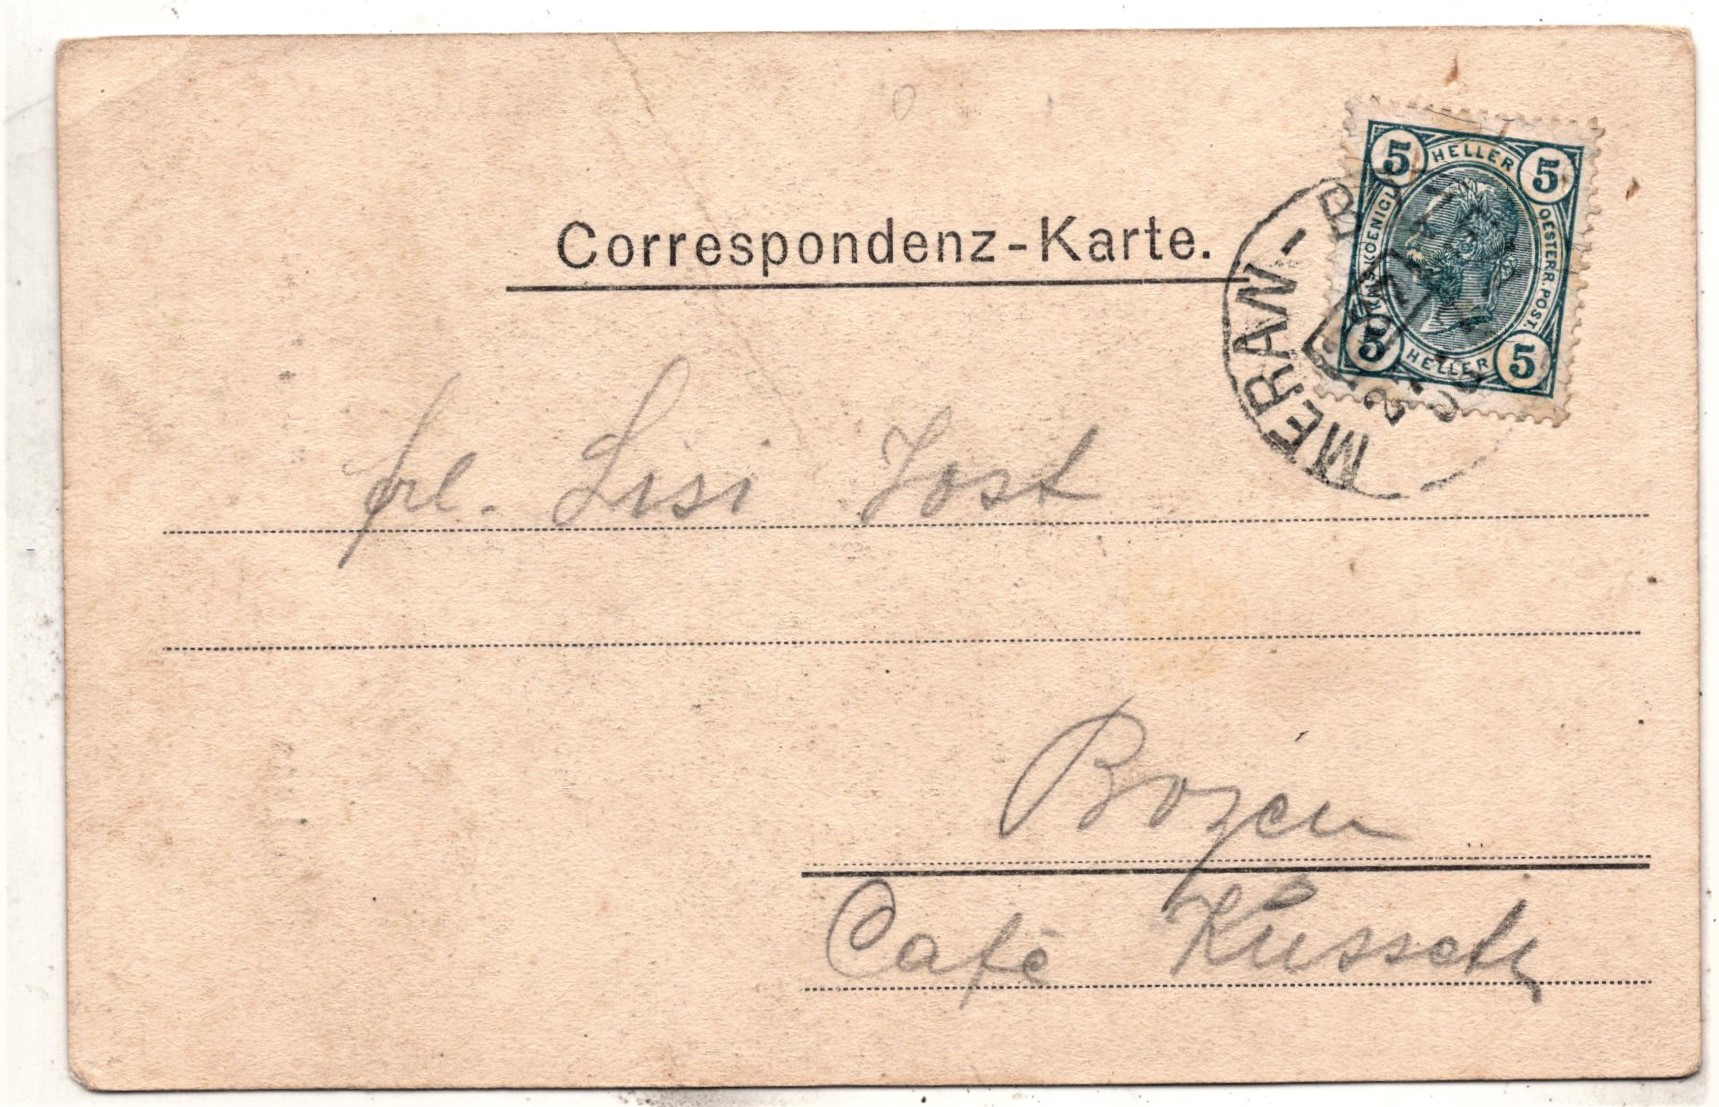 Correspondenz-Karte.
5 HELLER 5
KAIS. KOENIGL.
OESTERR. POST.
5 HELLER 5
MERAN - B
frl. Lisi Jost
Bozen
Café